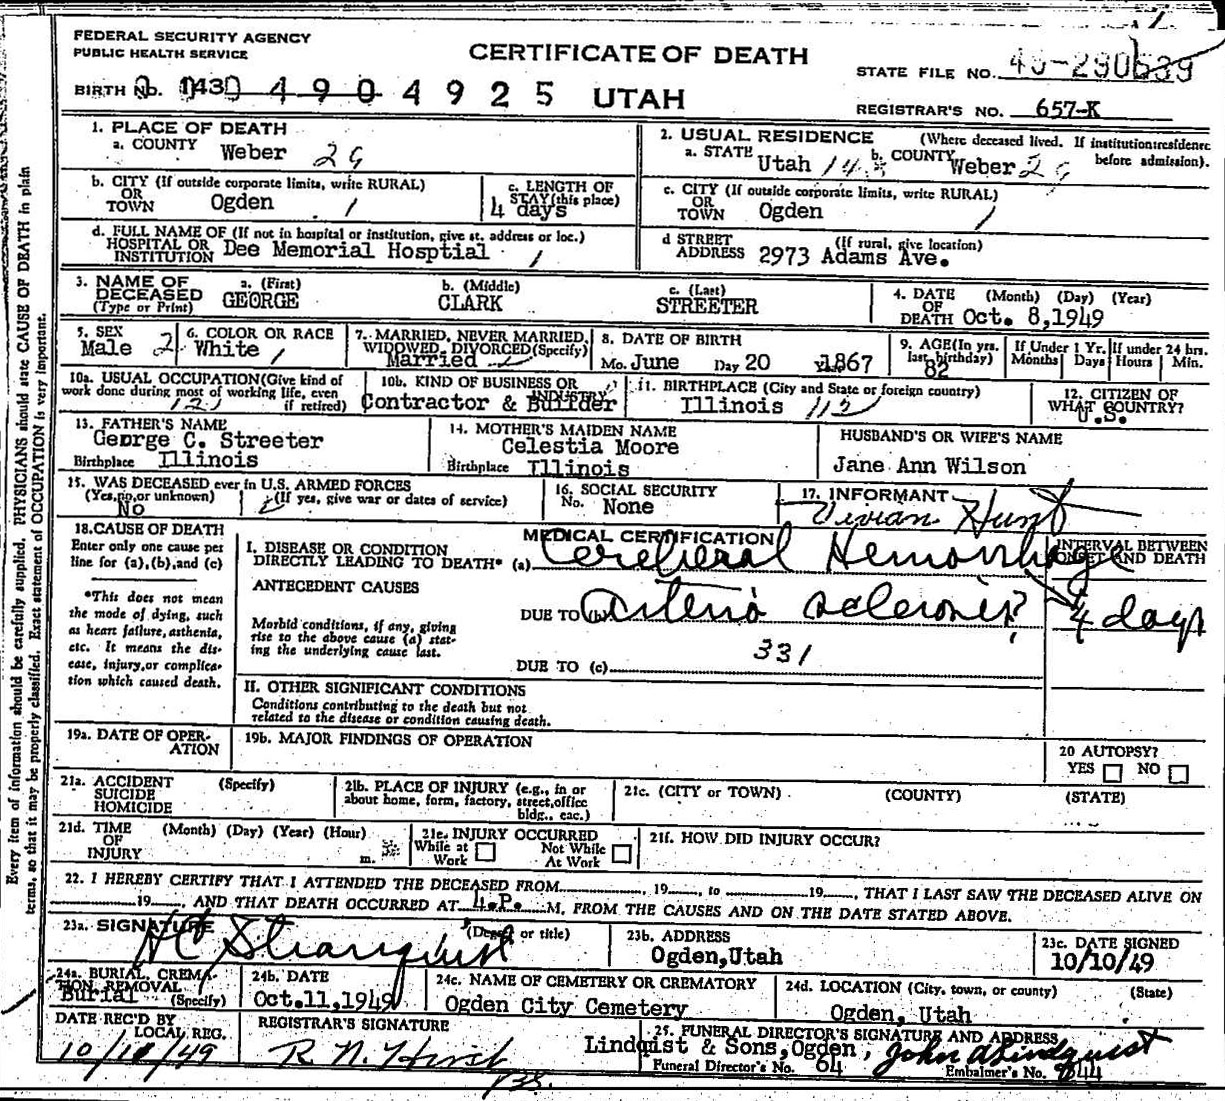 FEDERAL SECURITY AGENCY
PUBLIC HEALTH SERVICE
CERTIFICATE OF DEATH
STATE FILE NO.
BIRTH No. 4904925 UTAH
REGISTRAR'S NO. 657-K
1. PLACE OF DEATH
a. COUNTY Weber 29
2. USUAL RESIDENCE (Where deceased lived. If institution:residence before admission).
a. STATE Utah b. COUNTY Weber 29
b. CITY (If outside corporate limits, write RURAL)
OR TOWN Ogden 1
c. LENGTH OF STAY (this place)
4 days
c. CITY (If outside corporate limits, write RURAL)
OR TOWN Ogden
d. FULL NAME OF (If not in hospital or institution, give st. address or loc.)
HOSPITAL OR INSTITUTION Dee Memorial Hosptial
d STREET ADDRESS (If rural, give location)
2973 Adams Ave.
3. NAME OF DECEASED (Type or Print)
a. (First) GEORGE
b. (Middle) CLARK
c. (Last) STREETER
4. DATE OF DEATH (Month) (Day) (Year)
Oct. 8,1949
5. SEX Male 2
6. COLOR OR RACE White 1
7. MARRIED, NEVER MARRIED, WIDOWED, DIVORCED (Specify)
Married 2
8. DATE OF BIRTH
Mo. June Day 20 1867
9. AGE(In yrs. last birthday) 82
If Under 1 Yr. Months Days
If under 24 hrs. Hours Min.
10a. USUAL OCCUPATION(Give kind of work done during most of working life, even if retired)
10b. KIND OF BUSINESS OR INDUSTRY
Contractor & Builder
11. BIRTHPLACE (City and State or foreign country)
Illinois
12. CITIZEN OF WHAT COUNTRY?
U.S.
13. FATHER'S NAME
George C. Streeter
Birthplace Illinois
14. MOTHER'S MAIDEN NAME
Celestia Moore
Birthplace Illinois
HUSBAND'S OR WIFE'S NAME
Jane Ann Wilson
15. WAS DECEASED ever in U.S. ARMED FORCES
(Yes,no,or unknown) (If yes, give war or dates of service)
No
16. SOCIAL SECURITY
No. None
17. INFORMANT
Vivian Hunt
18.CAUSE OF DEATH
Enter only one cause per line for (a),(b),and (c)
*This does not mean the mode of dying, such as heart failure,asthenia, etc. It means the disease, injury,or complication which caused death.
MEDICAL CERTIFICATION
I. DISEASE OR CONDITION
DIRECTLY LEADING TO DEATH* (a) Cerebral Hemorrhage
INTERVAL BETWEEN ONSET AND DEATH
4 days
ANTECEDENT CAUSES
DUE TO (b) arterio sclerosis?
Morbid conditions, if any, giving rise to the above cause (a) stating the underlying cause last.
331
DUE TO (c)
II. OTHER SIGNIFICANT CONDITIONS
Conditions contributing to the death but not related to the disease or condition causing death.
19a. DATE OF OPERATION
19b. MAJOR FINDINGS OF OPERATION
20 AUTOPSY?
YES NO
21a. ACCIDENT SUICIDE HOMICIDE (Specify)
21b. PLACE OF INJURY (e.g., in or about home, form, factory, street,office bldg., eac.)
21c. (CITY or TOWN) (COUNTY) (STATE)
21d. TIME OF INJURY (Month) (Day) (Year) (Hour) m.
21e. INJURY OCCURRED
While at Work Not While At Work
21f. HOW DID INJURY OCCUR?
22. I HEREBY CERTIFY THAT I ATTENDED THE DECEASED FROM 19, to 19, THAT I LAST SAW THE DECEASED ALIVE ON
19, AND THAT DEATH OCCURRED AT 4.P. M, FROM THE CAUSES AND ON THE DATE STATED ABOVE.
23a. SIGNATURE (Degree or title)
HC Stranquist
23b. ADDRESS
Ogden,Utah
23c. DATE SIGNED
10/10/49
24a. BURIAL, CREMATION, REMOVAL (Specify)
Burial
24b. DATE
Oct.11,1949
24c. NAME OF CEMETERY OR CREMATORY
Ogden City Cemetery
24d. LOCATION (City, town, or county) (State)
Ogden, Utah
DATE REC'D BY LOCAL REG.
REGISTRAR'S SIGNATURE
25. FUNERAL DIRECTOR'S SIGNATURE AND ADDRESS
Lindqist & Sons,Ogden, John A Lindquist
Funeral Director's No. 64 Embalmer's No.
Every item of information should be carefully supplied. PHYSICIANS should state CAUSE OF DEATH in plain
terms, so that it may be properly classified. Exact statement of OCCUPATION is very important.